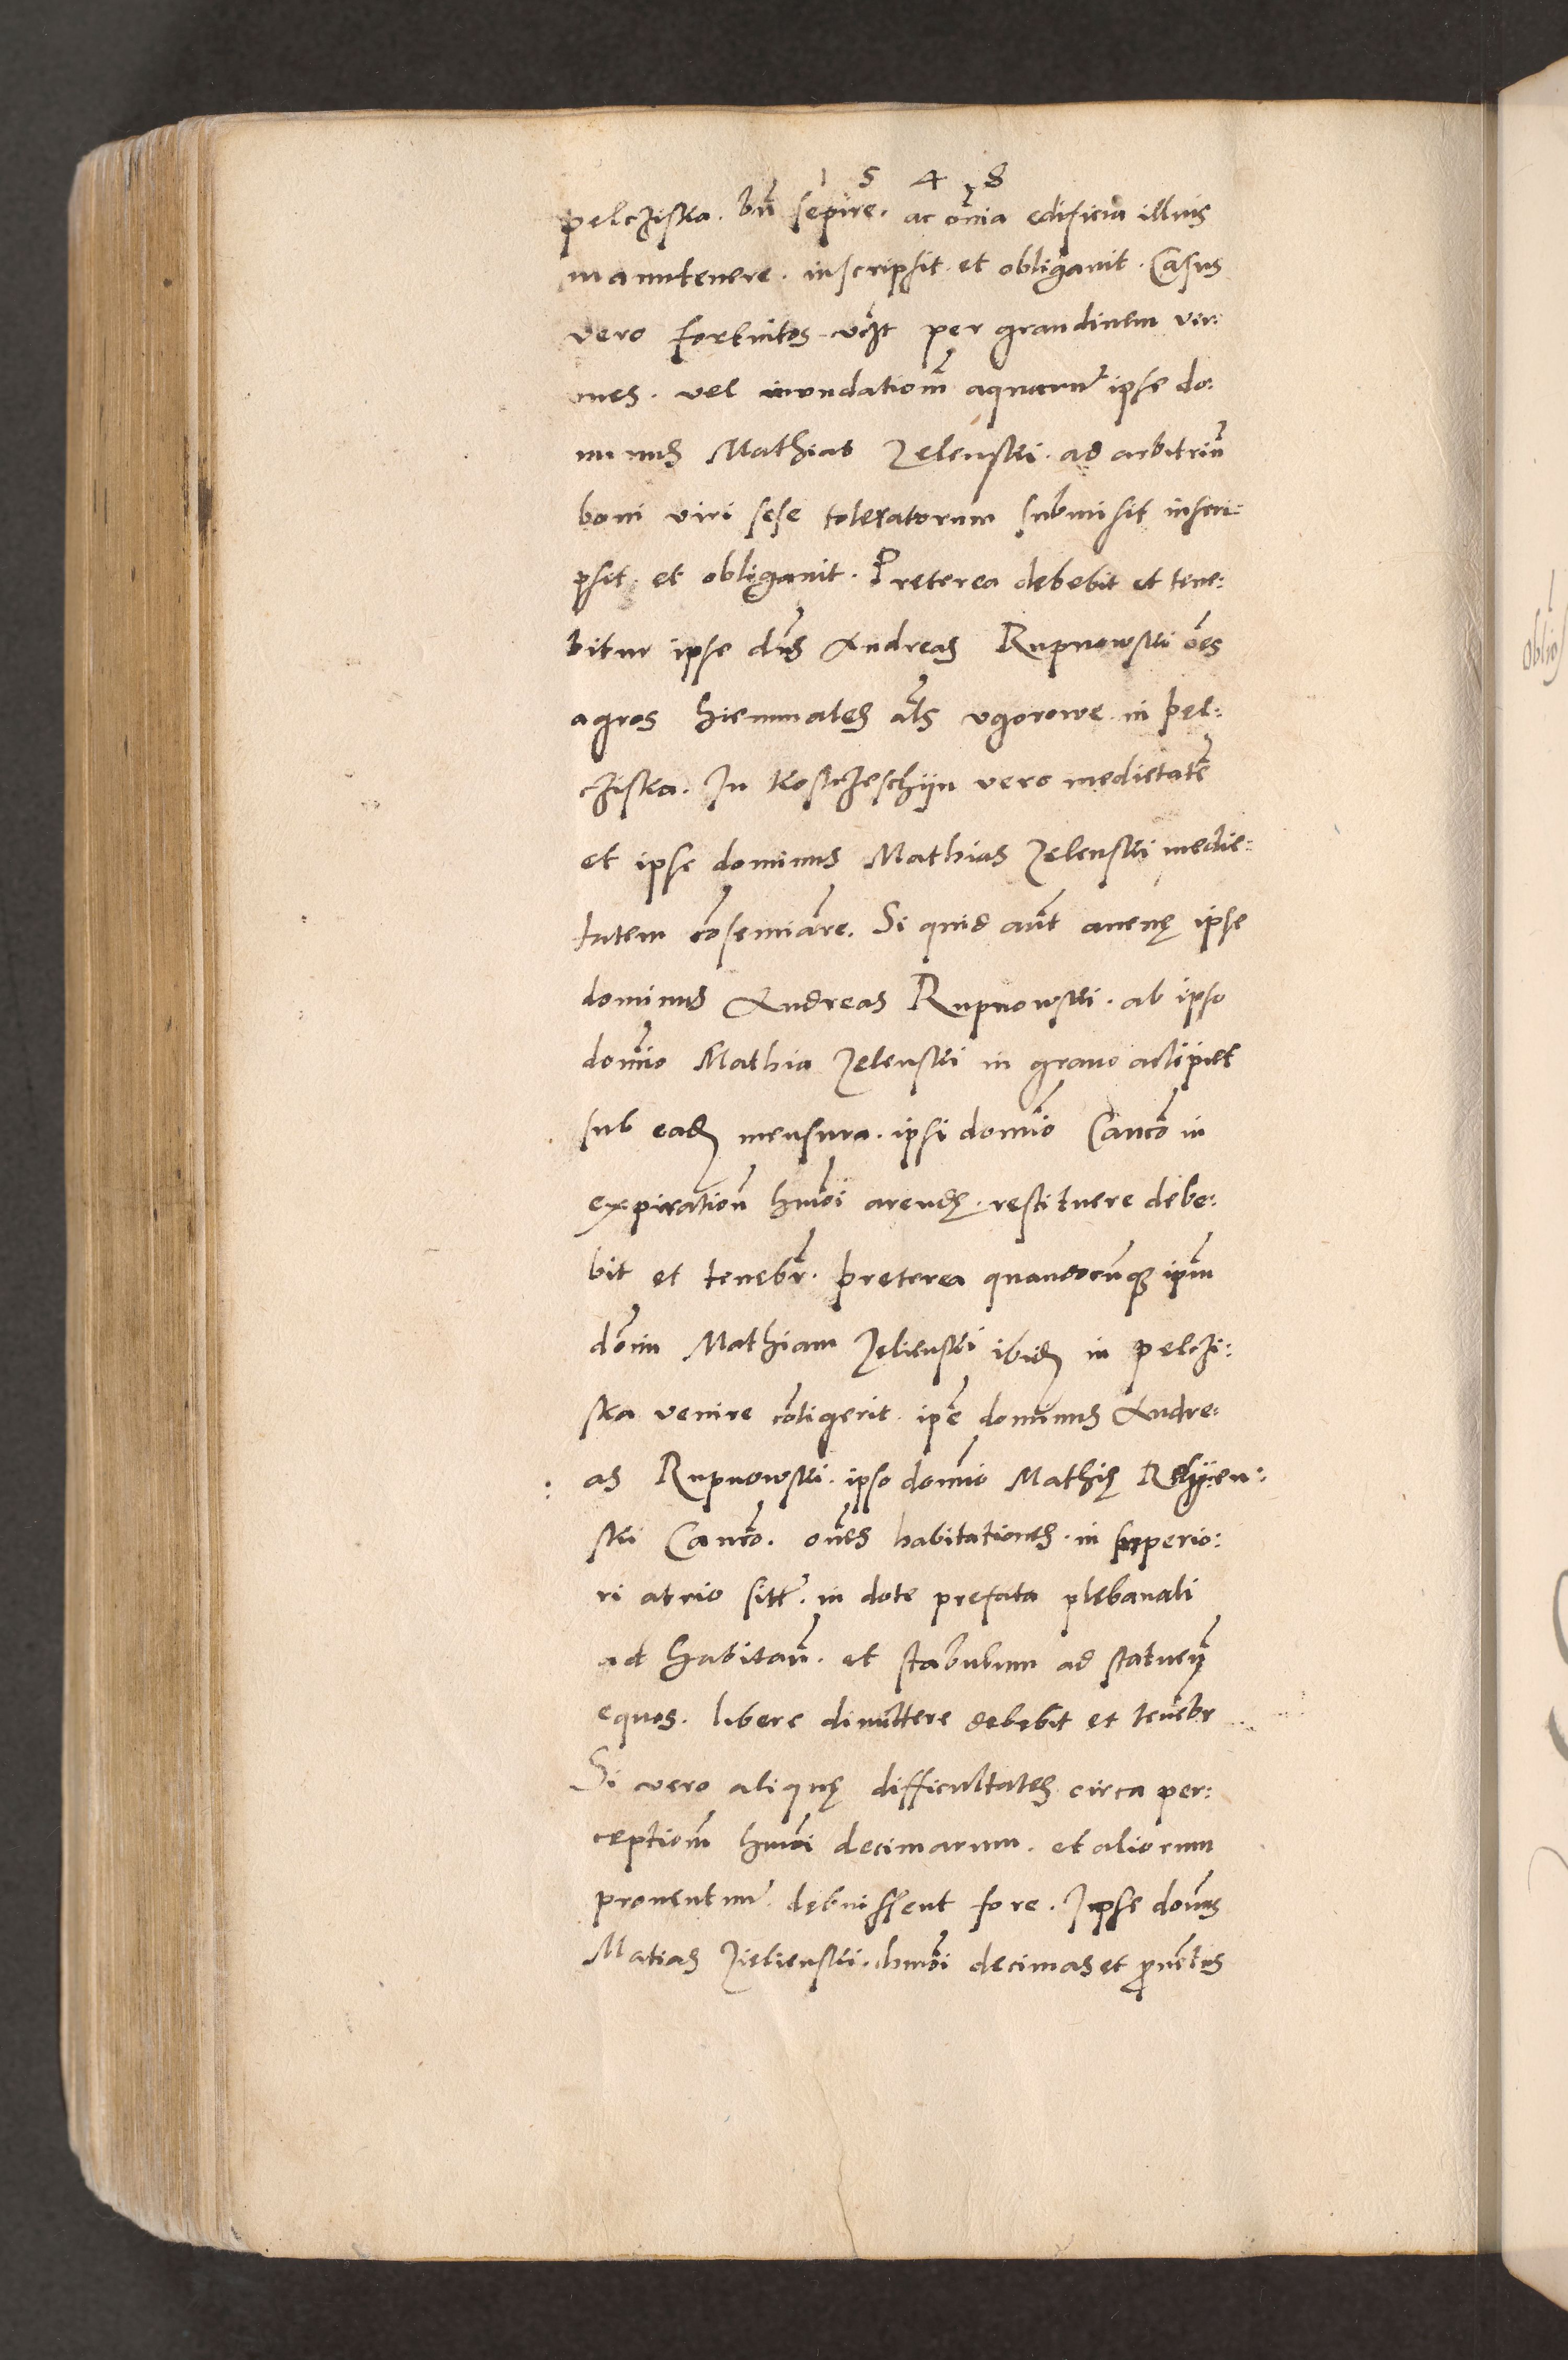 1 5 4 8
pelcziska. bn̄ sepire. ac oīnia edificia illius
manutenere. inscripsit et obligauit. Casus
vero fortuitos vc̄zt per grandinem ver:
mes. vel inondationē aquarūm ipse do:
minus Mathias Zelenski. ad arbitriū
boni viri sese toleraturum submisit inscri:
psit. et obligauit. Preterea debebit et tene:
bitur ipse dn̄s Andreas Rupnowski oēs
agros hiemmales al̄s vgorowe in pel:
cziska. In Kosczieschijn vero medietatē
et ipse dominus Mathias Zelenski medie:
tatem cōseminare. Si quid aūt auenę ipse
dominus Andreas Rupnowski. ab ipso
domīo Mathia Zelenski in grano accipiet
sub eadē mensura. ipsi domīo Canco in
expirationē hmōi arendę. restituere debe:
bit et tenebr̄. preterea quandocunq ipm̄
dōim Mathiam Zelienski ibidē in pelczi:
ska venire cōtigerit. ipē dominus Andre:
as Rupnowski. ipso domīo Mathię
ski Canco. om̄es habitationes. in superio:
ri atrio sitt̄. in dote prefata plebanali
ad habitan̄. et stabulum ad statuen̄
equos. libere dimittere debebit et tenebr
Si vero aliquę difficultates circa per:
ceptionē hmōi decimarum. et aliorum
prouentuū debuissent fore. Ipse domīus
Matias Zielienski. hmōi decimas et prouētus
oblig